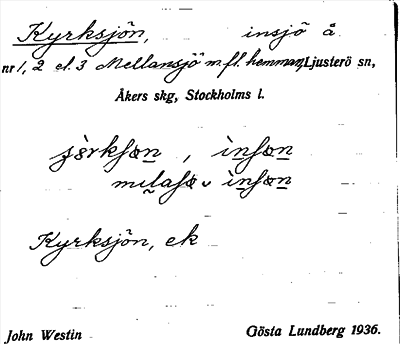 Kyrksjön, insjö å
nr 1, 2 el. 3 Mellansjö m. fl. hemman, Ljusterö sn,
Åkers skg, Stockholms l.
insɷn
Kyrksjön, ek
John Westin Gösta Lundberg 1936.